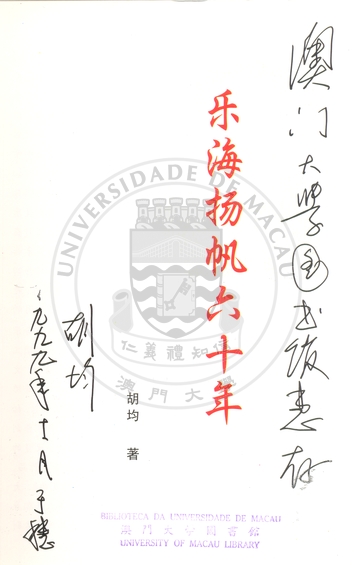 澳门大学图书馆惠存
乐海扬帆六十年
UNIVERSIDADE DE MACAU
仁義禮知信
澳門大學
胡均 著
胡均
一九九九年十一月于穗
BIBLIOTECA DA UNIVERSIDADE DE MACAU
澳門大學圖書館
UNIVERSITY OF MACAU LIBRARY